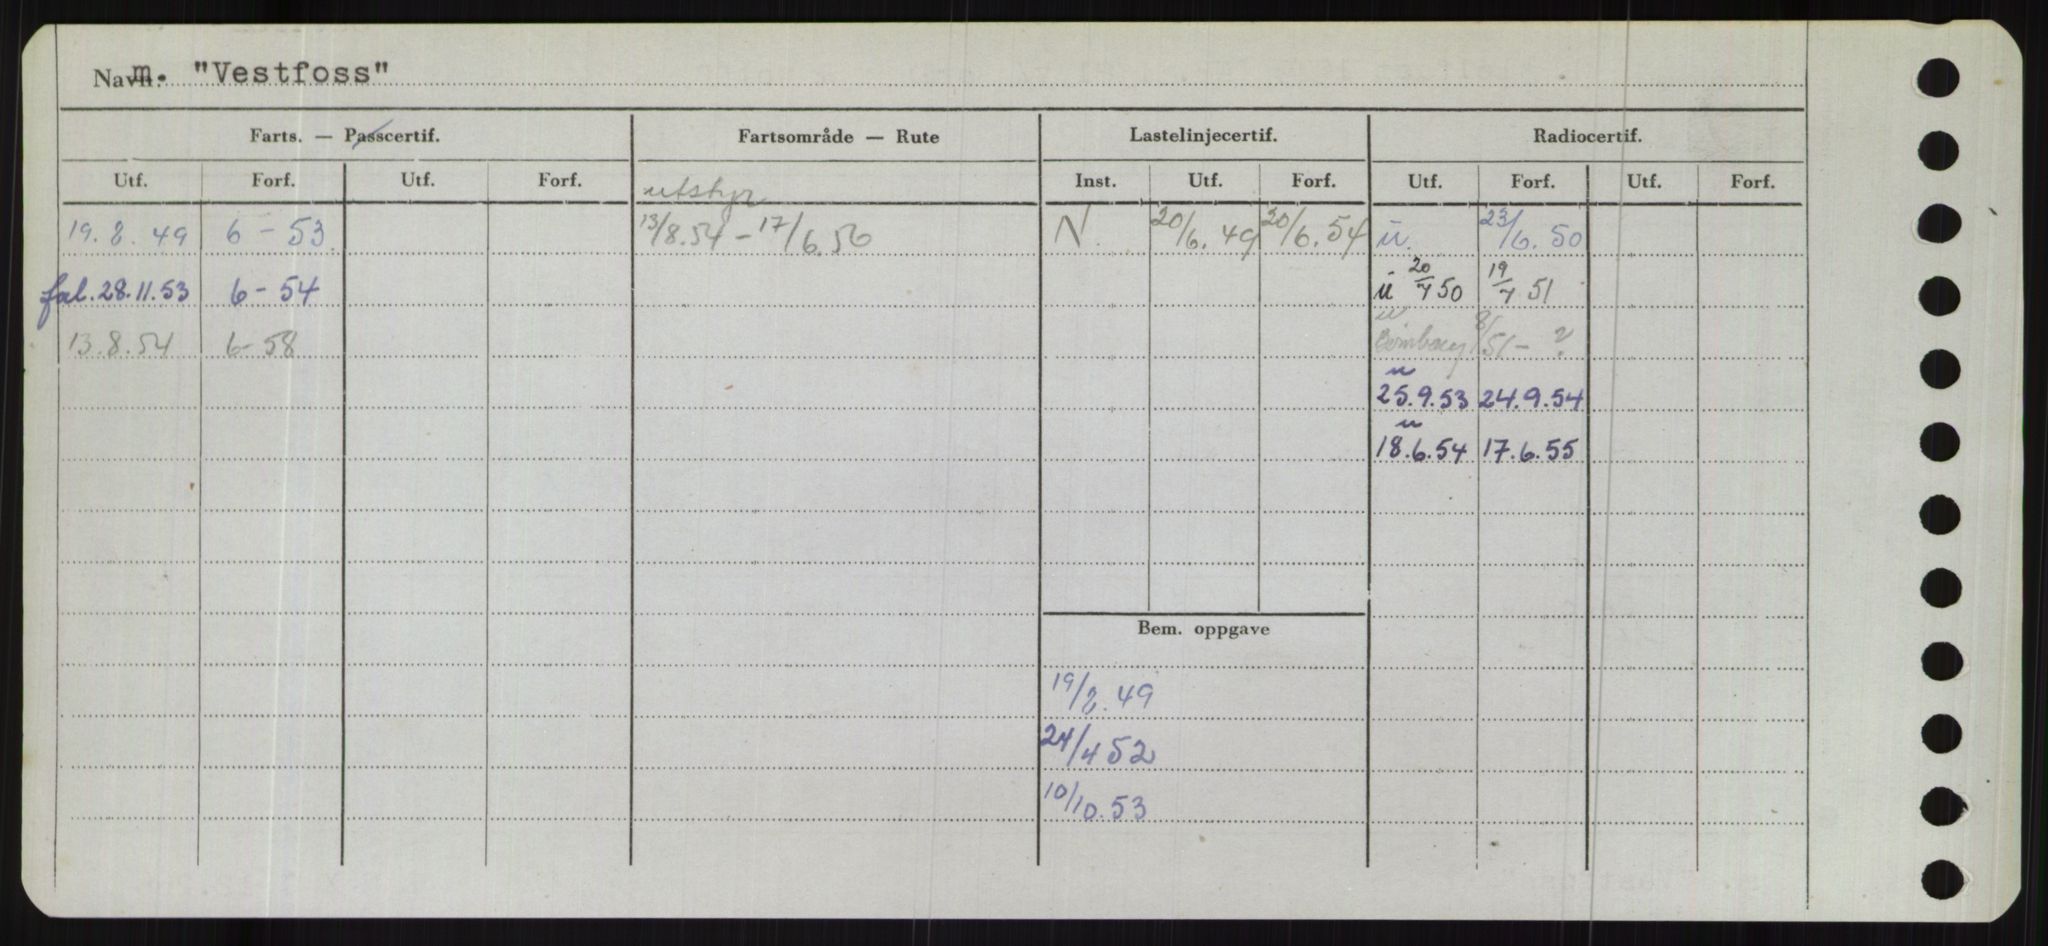 Navn: m. "Vestfoss"
Farts. — Passcertif. Fartsområde — Rute Lastelinjecertif. Radiocertif.
Utf. Forf. Utf. Forf. utstyr Inst. Utf. Forf. Utf. Forf. Utf. Forf.
19.8.49 6-53 13/8.54-17/6.56 N. 20/6.49 20/6.54 u. 23/6.50
fal. 28.11.53 6-54 u 20/7 50 19/7 51
13.8.54 6-58 u 8/51-?
u
25.9.53 24.9.54
u
18.6.54 17.6.55
Bem. oppgave
19/8.49
24/4 52
10/10.53